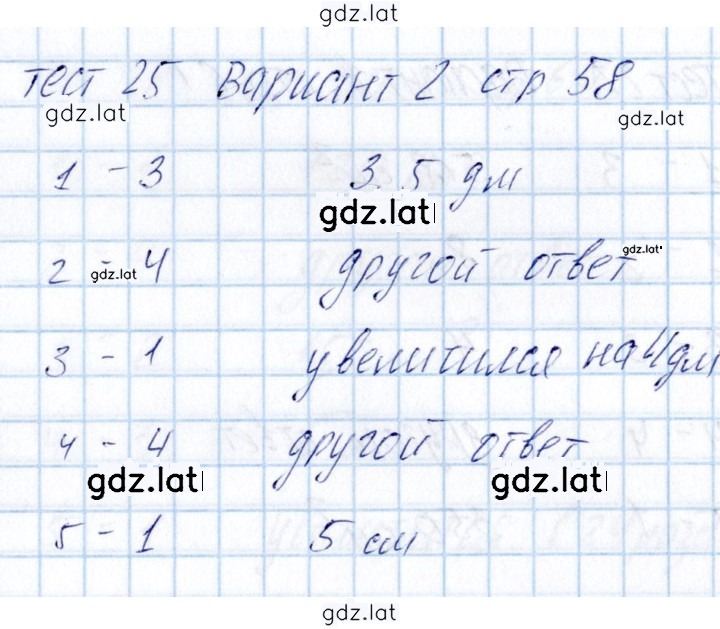 gdz.lat
тест 25 Вариант 2 стр 58
gdz.lat gdz.lat
1 - 3 3. 5 дм
gdz.lat
2 - 4 другой ответ
gdz.lat gdz.lat
3 - 1 увеличился на 4 дм
4 - 4 другой ответ
gdz.lat gdz.lat
5 - 1 5 см
gdz.lat